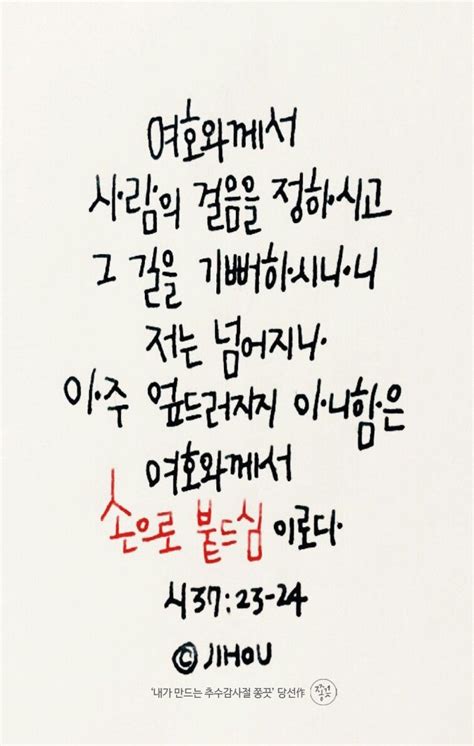 여호와께서
사람의 걸음을 정하시고
그 길을 기뻐하시나니
저는 넘어지나
아주 엎드러지지 아니함은
여호와께서
손으로 붙드심 이로다
시 37:23-24
© JIHOU
'내가 만드는 추수감사절 쫑끗' 당선作 쫑긋